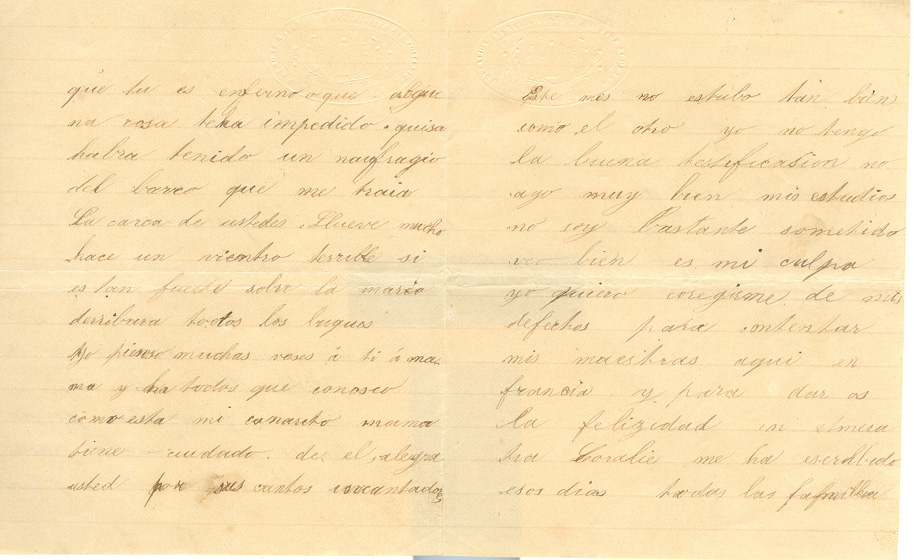 que tu es enfermo o que algu
na cosa teha impedido. quisa
habra tenido un naufragio
del barco que me traia
La carca de ustedes. Llueve mucho
hace un vientro terrible si
es tan fuerte sobre la maréo
derribara todos los buques
Yo pienso muchas veses á ti á ma
ma y ha todos que conosco
como esta mi canarito mama
tiene cuidado de el, alegra
usted por sus cantos encantados
Este mes no estubo tan bien
como el otro yo no tengo
la buena testificasion no
ago muy bien mis estudios
no soy bastante sometido
veo bien es mi culpa
yo quiero coregirme de mis
defectos para contentar
mis maestras aqui en
francia y para dar os
la felizidad
tra Coralie me ha escribido
esos dias todas las